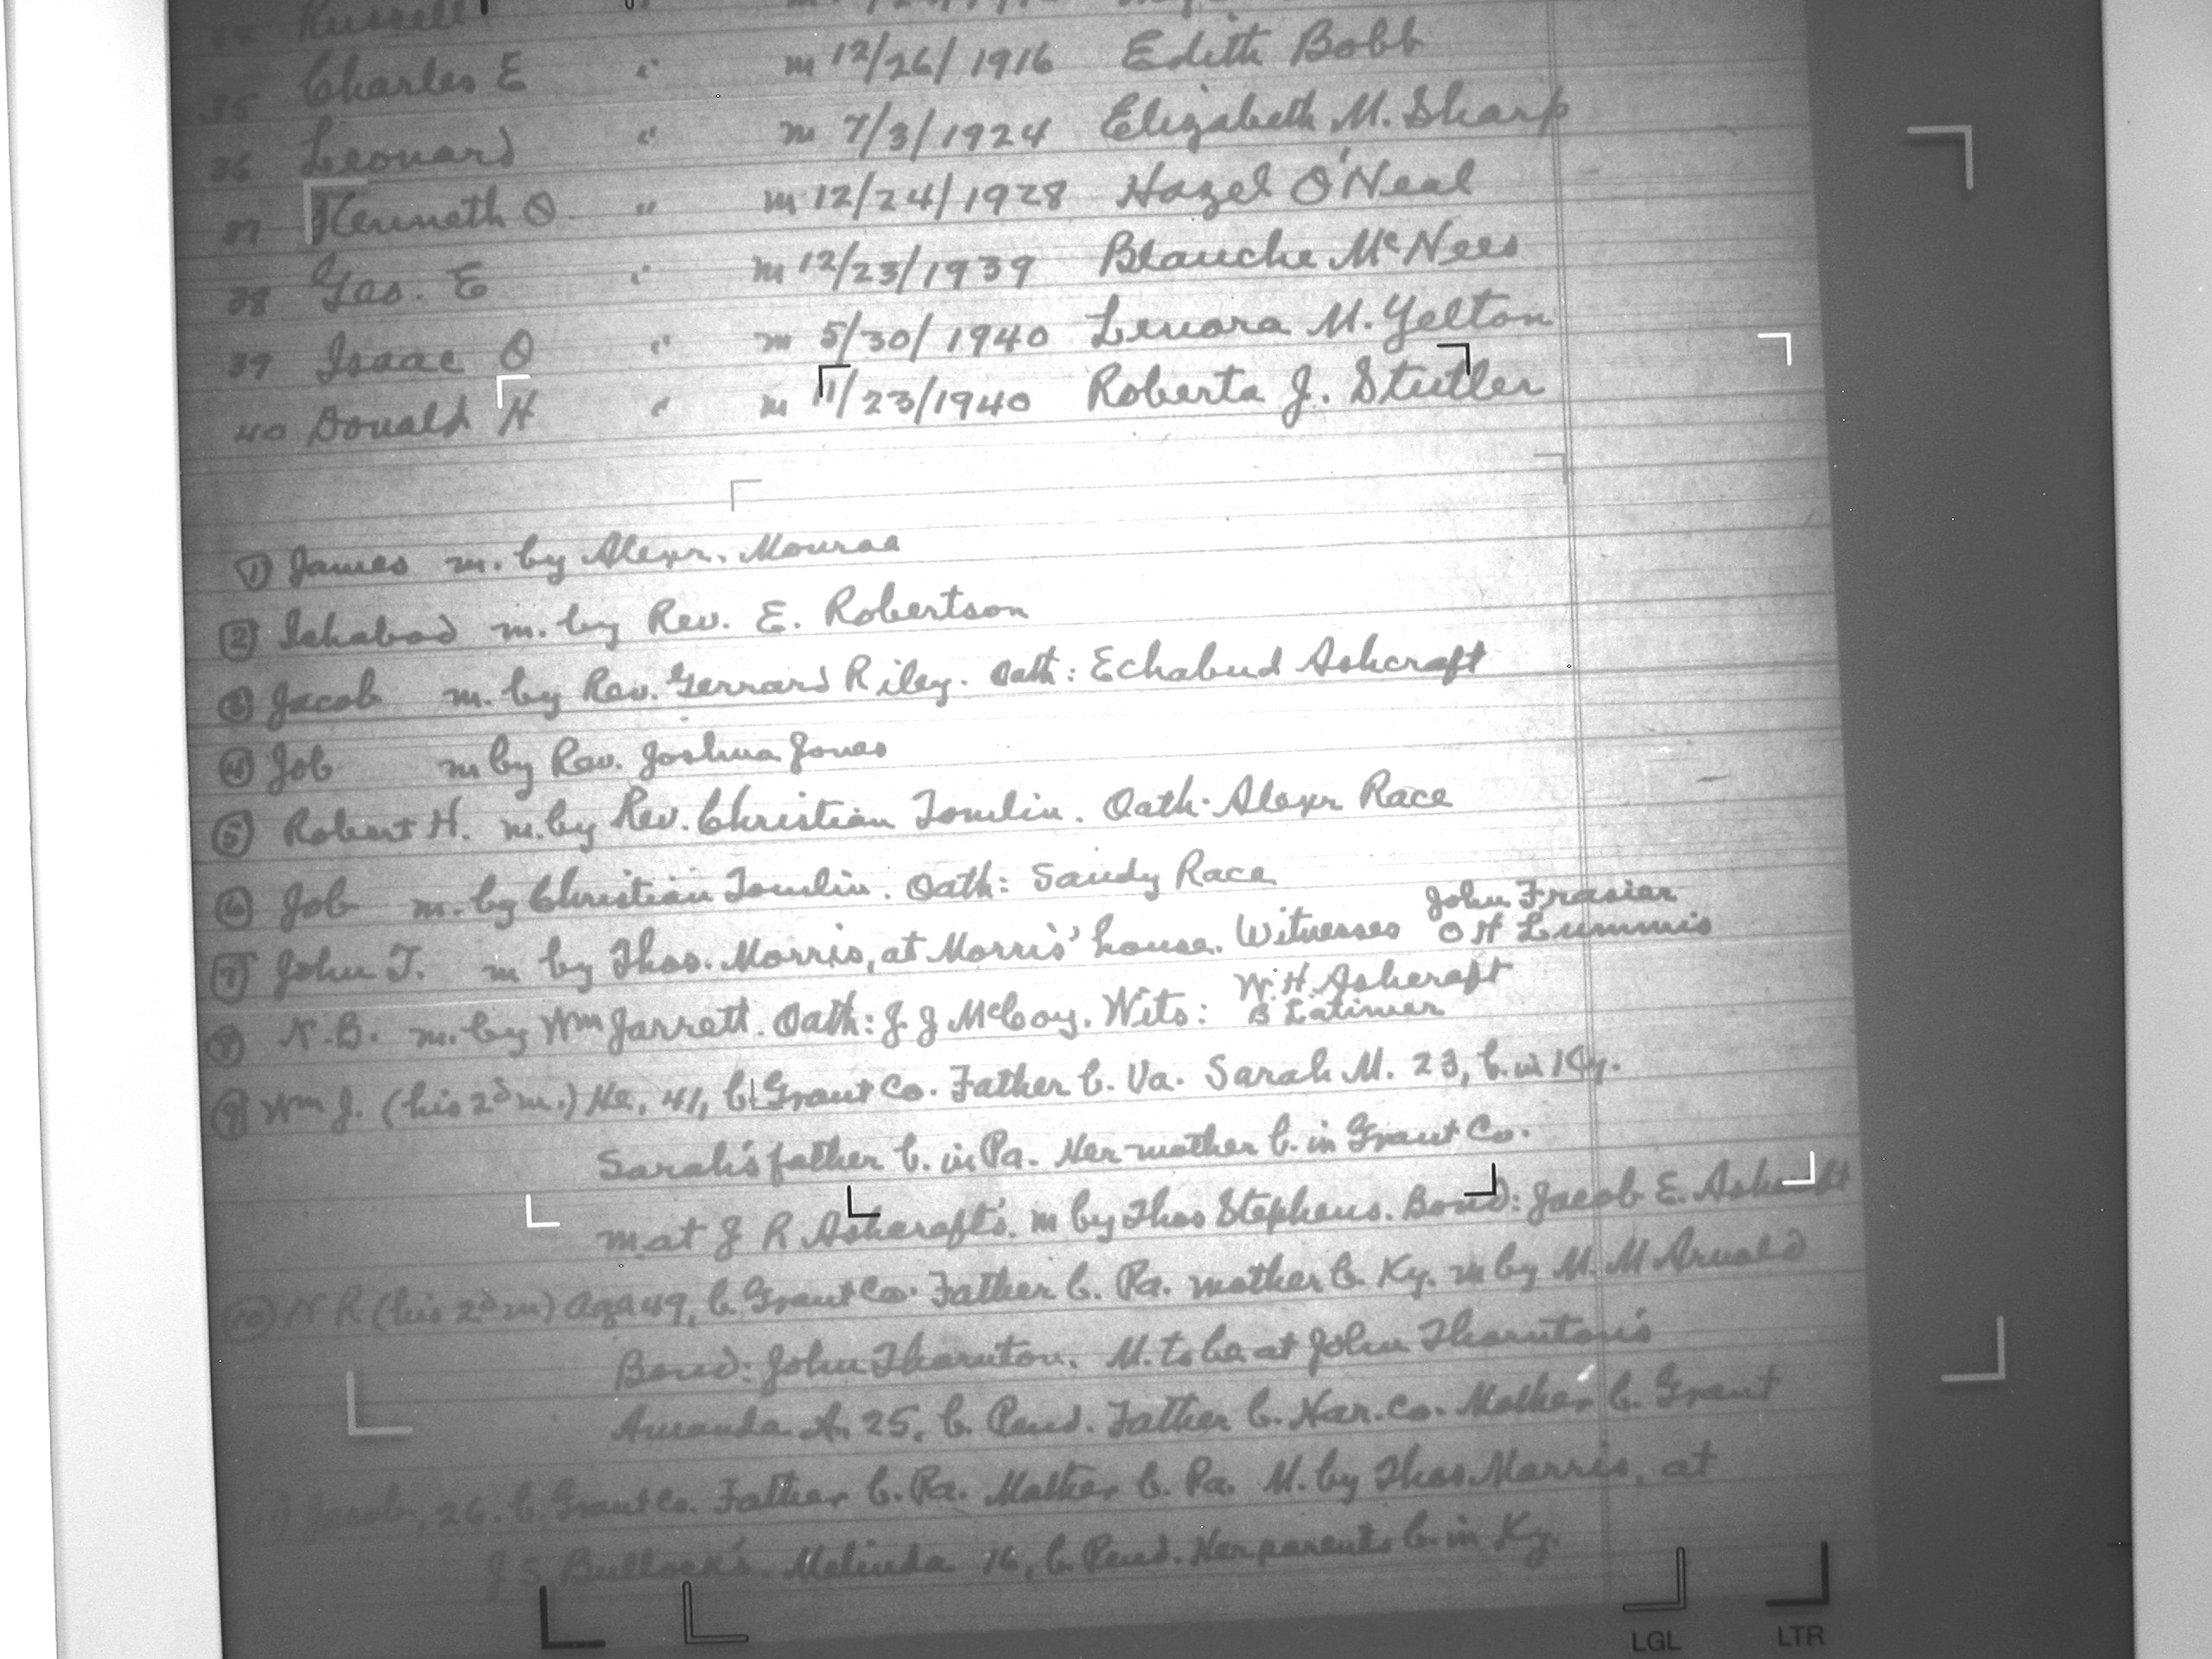 34 Russell "
35 Charles E " m 12/26/1916 Edith Bobb
36 Leonard " m 7/3/1924 Elizabeth M. Sharp
37 Kenneth O " m 12/24/1928 Hazel O'Neal
38 Jas. E " m 12/23/1939 Blanche McNees
39 Isaac O " m 5/30/1940 Lenora M. Yelton
40 Donald H " m 11/23/1940 Roberta J. Stutler
1 James m. by Alexr. Monroe
2 Ichabod m. by Rev. E. Robertson
3 Jacob m. by Rev. Gerrard Riley. Oath: Echabud Ashcraft
4 Job m by Rev. Joshua Jones
5 Robert H. m. by Rev. Christian Tomlin. Oath: Alexr Race
6 Job m. by Christian Tomlin. Oath: Sandy Race
7 John T. m by Thos. Morris, at Morris' house. Witnesses John Frasier
O H Lummis
8 N.B. m. by Wm Jarrett. Oath: J. J McCoy. Wits: W. H. Ashcraft
B Latimer
9 Wm J. (his 2d m.) He, 41, b Grant Co. Father b. Va. Sarah M. 23, b. in Ky.
Sarah's father b. in Pa. Her mother b. in Grant Co.
m at J R Ashcraft's. m by Thos Stephens. Bond: Jacob E. Ashcraft
10 N R (his 2d m) Age 49, b. Grant Co. Father b. Pa. mother b. Ky. m by M. M Arnold
Bond: John Thornton. M. to be at John Thornton's
Amanda A. 25, b. Pend. Father b. Har. Co. Mother b. Grant
11 Jacob, 26. b. Grant Co. Father b. Pa. Mother b. Pa. M. by Thos Morris, at
J S Bullock's. Melinda 16, b Pend. Her parents b. in Ky.
LGL LTR